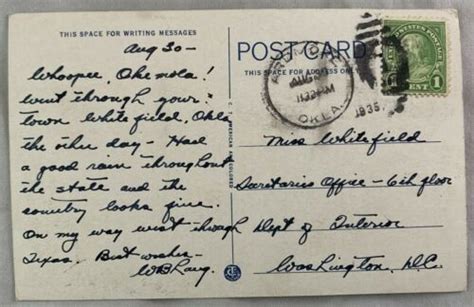 THIS SPACE FOR WRITING MESSAGES
Aug 30-
Whoopee, Okemola!
went through your
town Whitefield, Okla
the other day - Had
a good rain throughout
the state and the
country looks fine.
On my way west through
Texas. Best wishes-
POST CARD
THIS SPACE FOR ADDRESS ONLY
OKLA.
1935
1
CENT
Miss Whitefield
Secretaries Office - 6th floor
Dept of Interior
Washington, D.C.